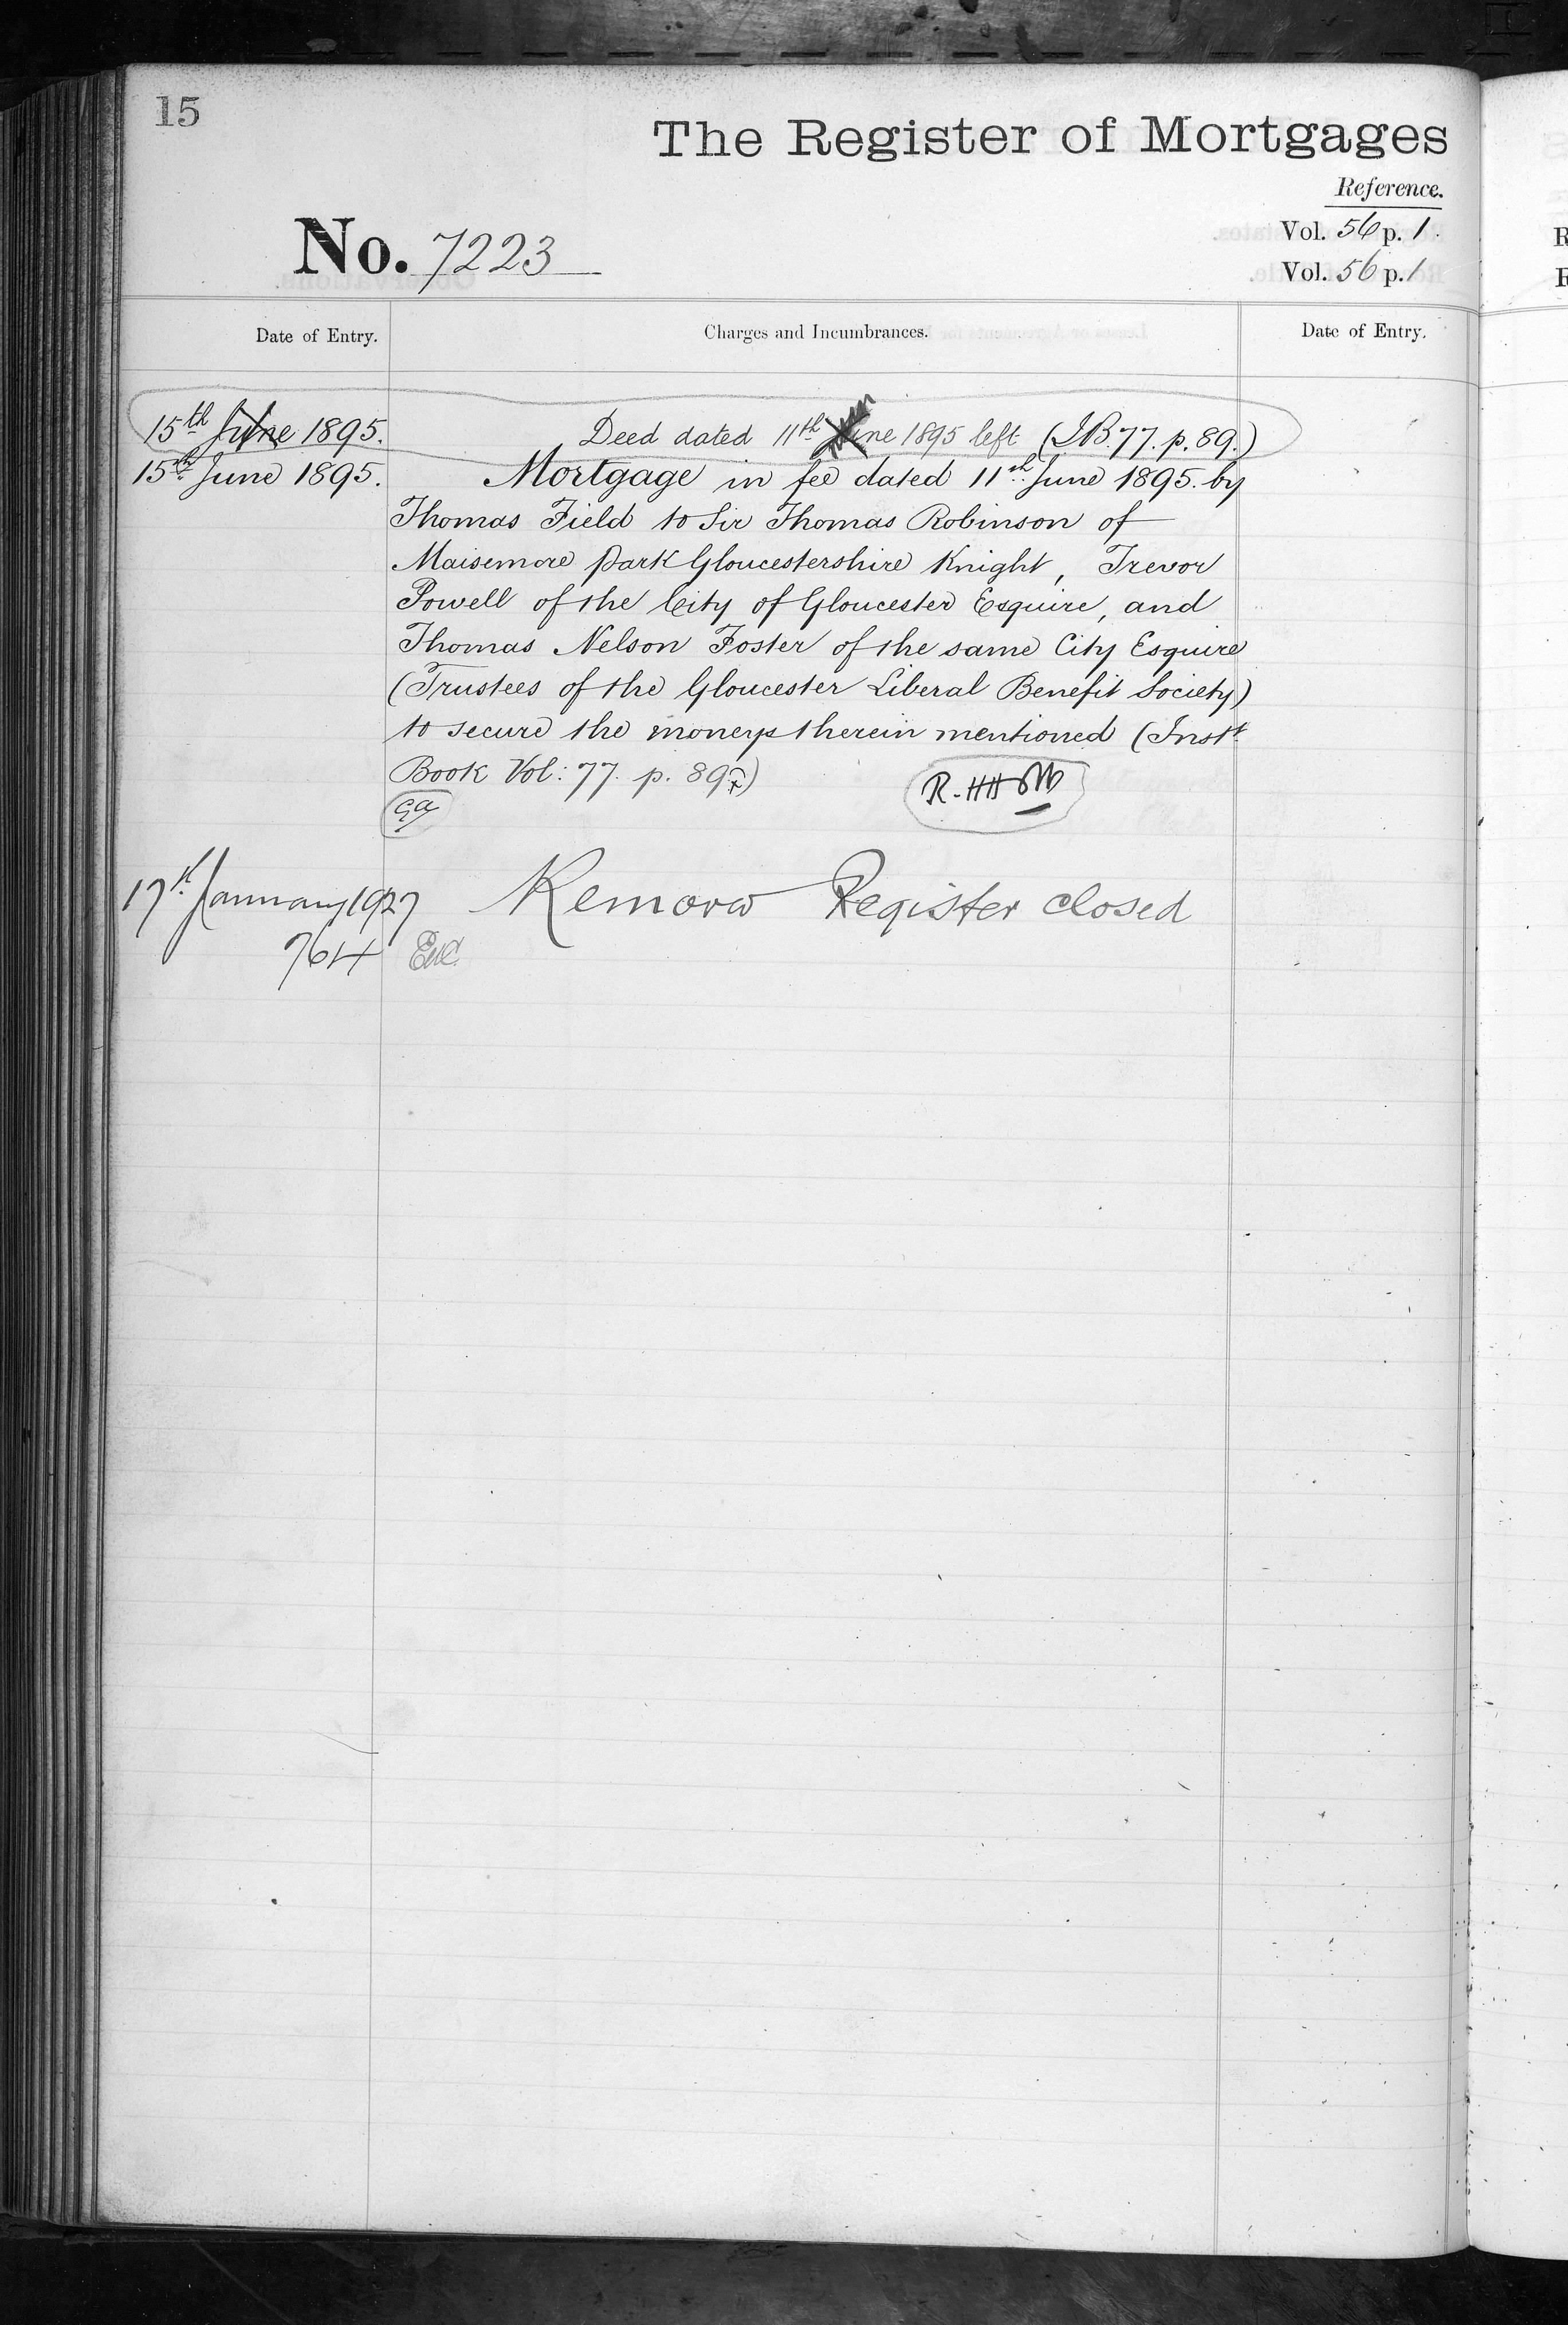 15
The Register of Mortgages
Reference.
No. 7223
Vol. 56 p. 1.
Vol. 56 p. 1
Date of Entry.
Charges and Incumbrances.
Date of Entry.
15th June 1895. Deed dated 11th June 1895 left (I.B. 77. p. 89.)
15th June 1895. Mortgage in fee dated 11th June 1895. by
Thomas Field to Sir Thomas Robinson of
Maisemore Park Gloucestershire Knight, Trevor
Powell of the City of Gloucester Esquire, and
Thomas Nelson Foster of the same City Esquire
(Trustees of the Gloucester Liberal Benefit Society)
to secure the moneys therein mentioned (Inst.
Book Vol: 77. p. 89)
R. HH
17th January 1927 Register closed
764